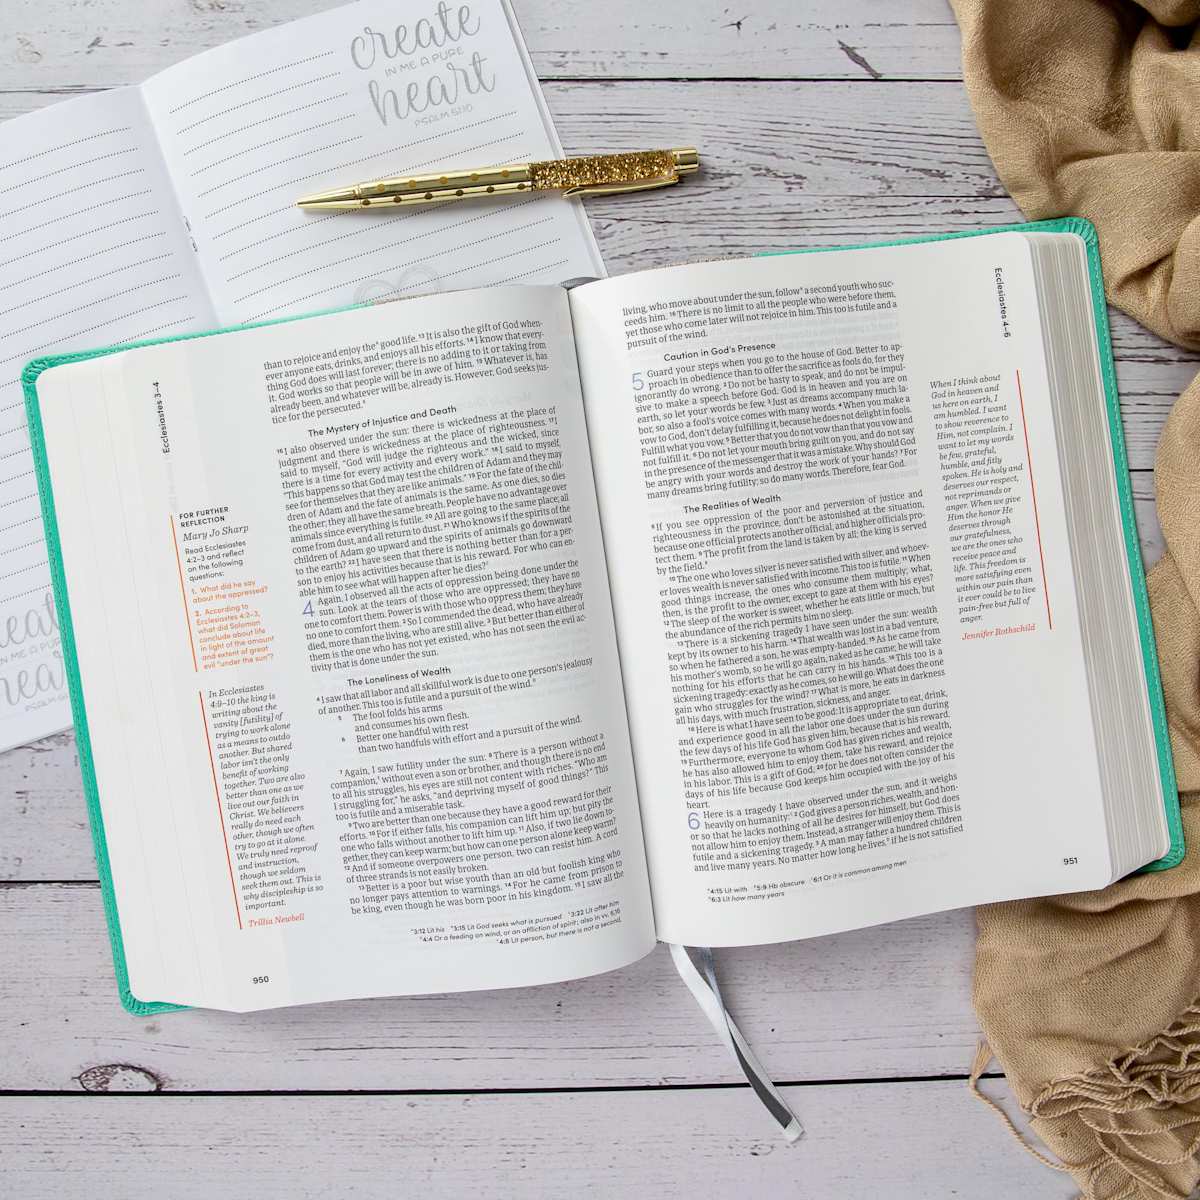 create
IN ME A PURE
heart
PSALM 51:10
Ecclesiastes 3–4
than to rejoice and enjoy the* good life. 13 It is also the gift of God when-
ever anyone eats, drinks, and enjoys all his efforts. 14 I know that every-
thing God does will last forever; there is no adding to it or taking from
it. God works so that people will be in awe of him. 15 Whatever is, has
already been, and whatever will be, already is. However, God seeks jus-
tice for the persecuted.
The Mystery of Injustice and Death
16 I also observed under the sun: there is wickedness at the place of
judgment and there is wickedness at the place of righteousness. 17 I
said to myself, "God will judge the righteous and the wicked, since
there is a time for every activity and every work." 18 I said to myself,
"This happens so that God may test the children of Adam and they may
see for themselves that they are like animals." 19 For the fate of the chil-
dren of Adam and the fate of animals is the same. As one dies, so dies
the other; they all have the same breath. People have no advantage over
animals since everything is futile. 20 All are going to the same place; all
come from dust, and all return to dust. 21 Who knows if the spirits of the
children of Adam go upward and the spirits of animals go downward
to the earth? 22 I have seen that there is nothing better than for a per-
son to enjoy his activities because that is his reward. For who can en-
able him to see what will happen after he dies?
4 Again, I observed all the acts of oppression being done under the
sun. Look at the tears of those who are oppressed; they have no
one to comfort them. Power is with those who oppress them; they have
no one to comfort them. 2 So I commended the dead, who have already
died, more than the living, who are still alive. 3 But better than either of
them is the one who has not yet existed, who has not seen the evil ac-
tivity that is done under the sun.
The Loneliness of Wealth
4 I saw that all labor and all skillful work is due to one person's jealousy
of another. This too is futile and a pursuit of the wind.
5 The fool folds his arms
and consumes his own flesh.
6 Better one handful with rest
than two handfuls with effort and a pursuit of the wind.
7 Again, I saw futility under the sun: 8 There is a person without a
companion, without even a son or brother, and though there is no end
to all his struggles, his eyes are still not content with riches. "Who am
I struggling for," he asks, "and depriving myself of good things?" This
too is futile and a miserable task.
9 Two are better than one because they have a good reward for their
efforts. 10 For if either falls, his companion can lift him up; but pity the
one who falls without another to lift him up. 11 Also, if two lie down to-
gether, they can keep warm; but how can one person alone keep warm?
12 And if someone overpowers one person, two can resist him. A cord
of three strands is not easily broken.
13 Better is a poor but wise youth than an old but foolish king who
no longer pays attention to warnings. 14 For he came from prison to
be king, even though he was born poor in his kingdom. 15 I saw all the
*3:12 Lit his *3:15 Lit God seeks what is pursued *3:22 Lit after him
*4:4 Or a feeding on wind, or an affliction of spirit; also in vv. 6,16
*4:8 Lit person, but there is not a second,
FOR FURTHER
REFLECTION
Mary Jo Sharp
Read Ecclesiastes
4:2–3 and reflect
on the following
questions:
1. What did he say
about the oppressed?
2. According to
Ecclesiastes 4:2–3,
what did Solomon
conclude about life
in light of the amount
and extent of great
evil "under the sun"?
In Ecclesiastes
4:9–10 the king is
writing about the
vanity [futility] of
trying to work alone
as a means to outdo
another. But shared
labor isn't the only
benefit of working
together. Two are also
better than one as we
live out our faith in
Christ. We believers
really do need each
other, though we often
try to go at it alone.
We truly need reproof
and instruction,
though we seldom
seek them out. This is
why discipleship is so
important.
Trillia Newbell
950
Ecclesiastes 4–6
living, who move about under the sun, follow* a second youth who suc-
ceeds him. 16 There is no limit to all the people who were before them,
yet those who come later will not rejoice in him. This too is futile and a
pursuit of the wind.
Caution in God's Presence
5 Guard your steps when you go to the house of God. Better to ap-
proach in obedience than to offer the sacrifice as fools do, for they
ignorantly do wrong. 2 Do not be hasty to speak, and do not be impul-
sive to make a speech before God. God is in heaven and you are on
earth, so let your words be few. 3 Just as dreams accompany much la-
bor, so also a fool's voice comes with many words. 4 When you make a
vow to God, don't delay fulfilling it, because he does not delight in fools.
Fulfill what you vow. 5 Better that you do not vow than that you vow and
not fulfill it. 6 Do not let your mouth bring guilt on you, and do not say
in the presence of the messenger that it was a mistake. Why should God
be angry with your words and destroy the work of your hands? 7 For
many dreams bring futility; so do many words. Therefore, fear God.
The Realities of Wealth
8 If you see oppression of the poor and perversion of justice and
righteousness in the province, don't be astonished at the situation,
because one official protects another official, and higher officials pro-
tect them. 9 The profit from the land is taken by all; the king is served
by the field.
10 The one who loves silver is never satisfied with silver, and whoev-
er loves wealth is never satisfied with income. This too is futile. 11 When
good things increase, the ones who consume them multiply; what,
then, is the profit to the owner, except to gaze at them with his eyes?
12 The sleep of the worker is sweet, whether he eats little or much, but
the abundance of the rich permits him no sleep.
13 There is a sickening tragedy I have seen under the sun: wealth
kept by its owner to his harm. 14 That wealth was lost in a bad venture,
so when he fathered a son, he was empty-handed. 15 As he came from
his mother's womb, so he will go again, naked as he came; he will take
nothing for his efforts that he can carry in his hands. 16 This too is a
sickening tragedy: exactly as he comes, so he will go. What does the one
gain who struggles for the wind? 17 What is more, he eats in darkness
all his days, with much frustration, sickness, and anger.
18 Here is what I have seen to be good: It is appropriate to eat, drink,
and experience good in all the labor one does under the sun during
the few days of his life God has given him, because that is his reward.
19 Furthermore, everyone to whom God has given riches and wealth,
he has also allowed him to enjoy them, take his reward, and rejoice
in his labor. This is a gift of God, 20 for he does not often consider the
days of his life because God keeps him occupied with the joy of his
heart.
6 Here is a tragedy I have observed under the sun, and it weighs
heavily on humanity: 2 God gives a person riches, wealth, and hon-
or so that he lacks nothing of all he desires for himself, but God does
not allow him to enjoy them. Instead, a stranger will enjoy them. This is
futile and a sickening tragedy. 3 A man may father a hundred children
and live many years. No matter how long he lives, if he is not satisfied
*4:15 Lit with *5:9 Hb obscure *6:1 Or it is common among men
*6:3 Lit how many years
When I think about
God in heaven and
us here on earth, I
am humbled. I want
to show reverence to
Him, not complain. I
want to let my words
be few, grateful,
humble, and fitly
spoken. He is holy and
deserves our respect,
not reprimands or
anger. When we give
Him the honor He
deserves through
our gratefulness,
we are the ones who
receive peace and
life. This freedom is
more satisfying even
within our pain than
it ever could be to live
pain-free but full of
anger.
Jennifer Rothschild
951